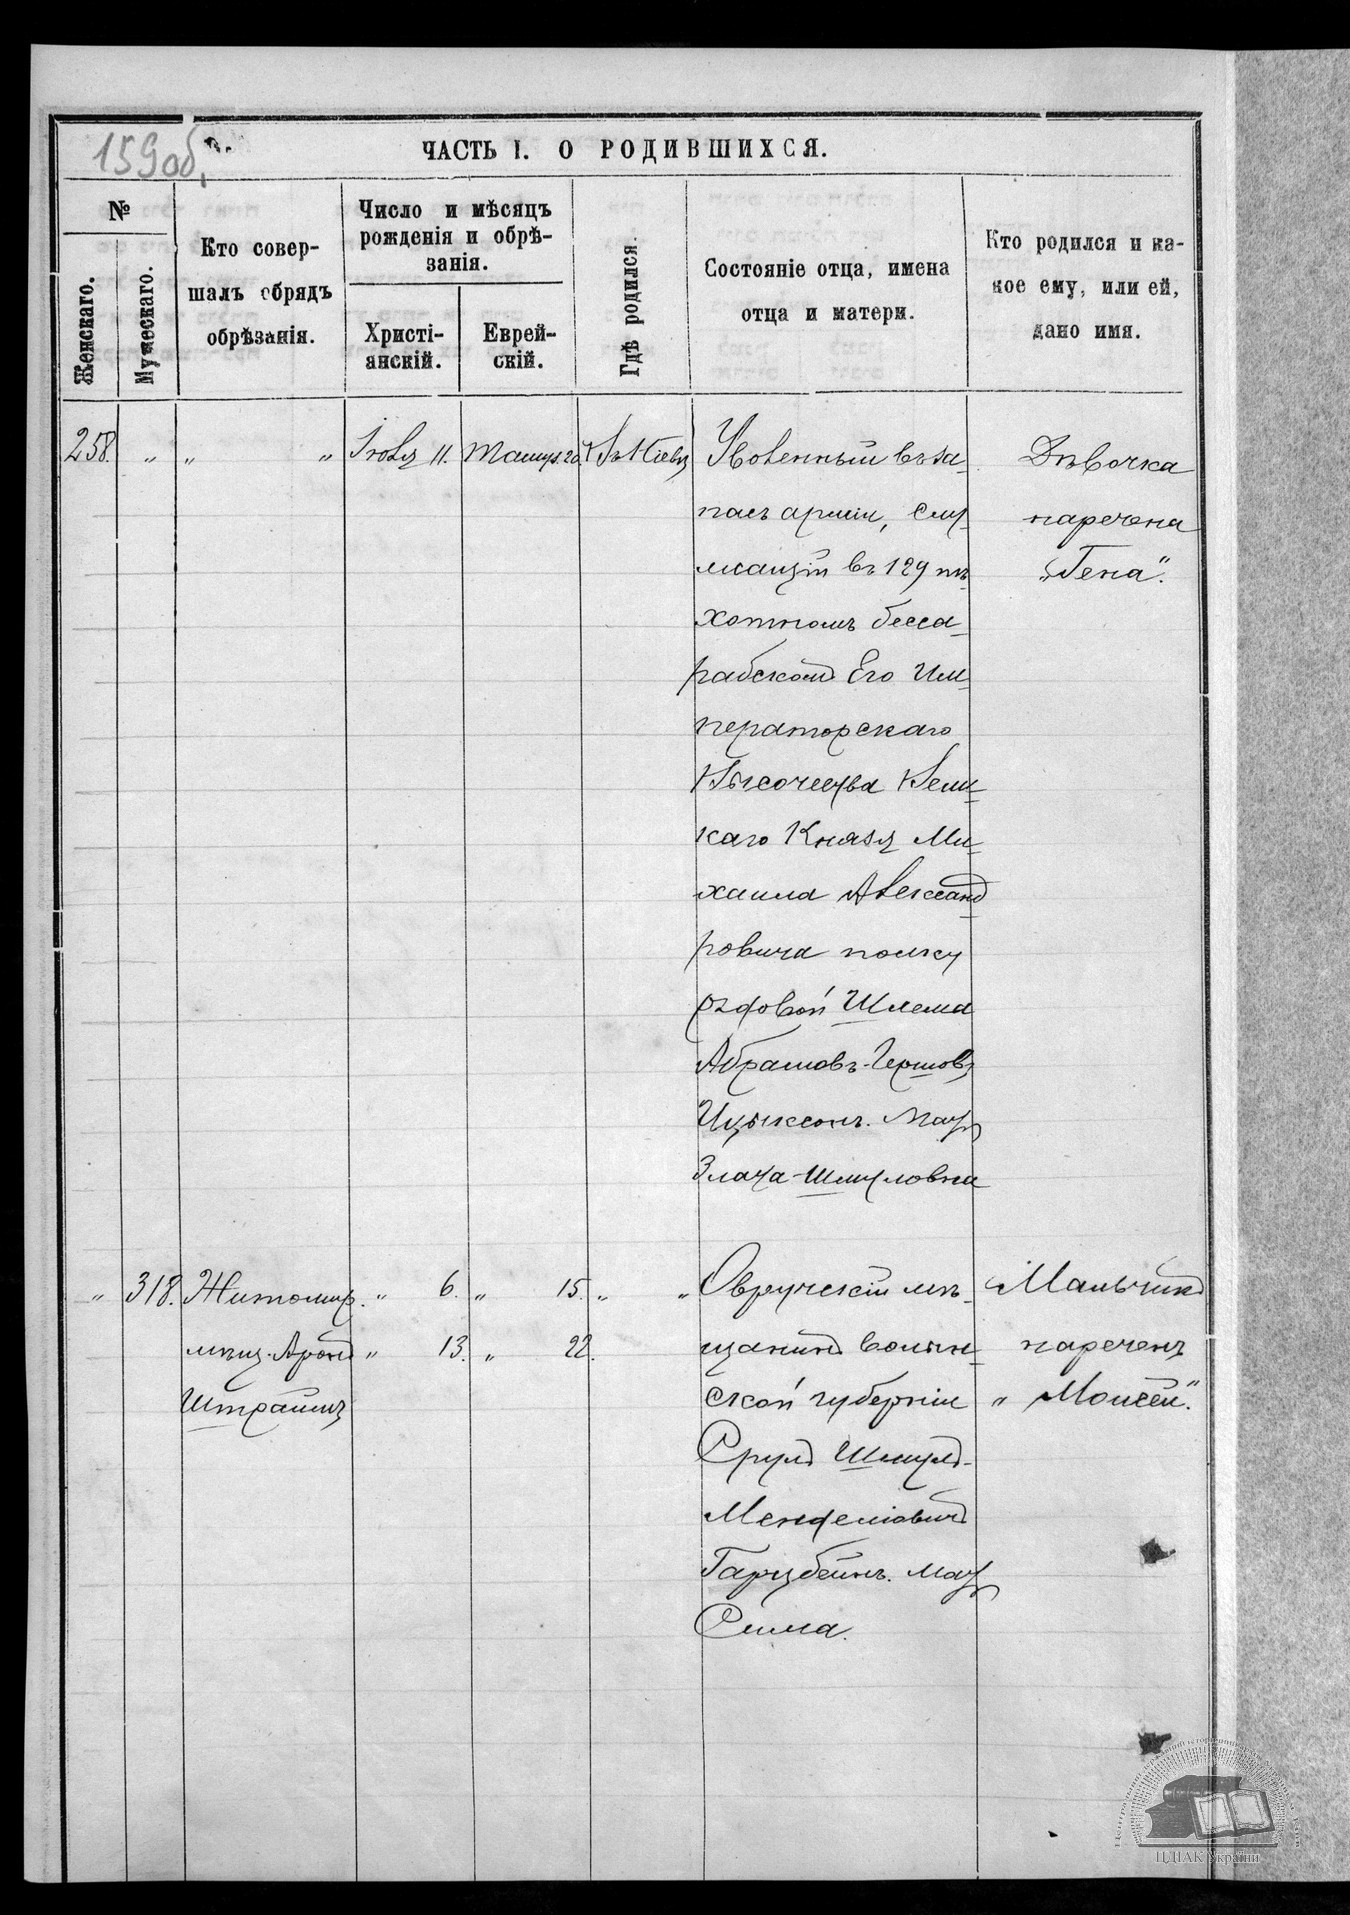 159об.
ЧАСТЬ I. О РОДИВШИХСЯ.
№
Женскаго.
Мужескаго.
Кто совер-
шалъ обрядъ
обрѣзанія.
Число и мѣсяцъ
рожденія и обрѣ-
занія.
Христі-
анскій.
Еврей-
скій.
Гдѣ родился.
Состояніе отца, имена
отца и матери.
Кто родился и ка-
кое ему, или ей,
дано имя.
258. " " " Іюля 11. Тамуз. 20. Въ Кіевѣ
Уволенный въ за-
пасъ арміи, слу-
жащій въ 129 пѣ-
хотномъ бесса-
рабскомъ Его Им-
ператорскаго
Высочества Вели-
каго Князя Ми-
хаила Александ-
ровича полку
рядовой Шлема
Абрамовъ-Гершовъ
Ицыксонъ. Мать
Злата-Шмуловна
Дѣвочка
наречена
„Гена".
" 318. Житомир.
мѣщ. Аронъ
Штраймъ
" 6. " 15. " "
" 13. " 22.
Овручскій мѣ-
щанинъ Волын-
ской губерніи
Сруль Шмуль-
Менделіовичъ
Гарцбейнъ. Мать
Сима.
Мальчикъ
нареченъ
„Моисей".
ЦДІАК України